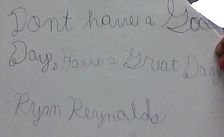 Dont have a Goo
Day, Have a Great Day
Ryan Reynolds